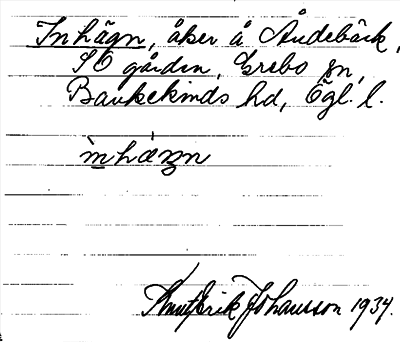 Inhägn, åker å Åndebäck,
SO gården, Grebo sn,
Bankekinds hd, Ögl. l.
ìnhæŋn
Knut Erik Johansson 1934.